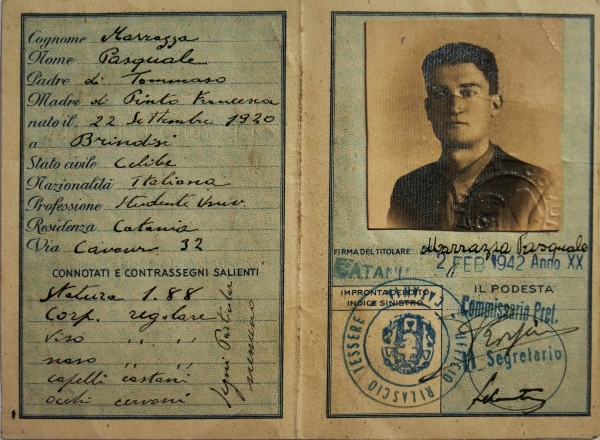 Cognome Marrazza
Nome Pasquale
Padre di Tommaso
Madre di Pinto Francesca
nato il 22 Settembre 1920
a Brindisi
Stato civile Celibe
Nazionalità Italiana
Professione Studente Univ
Residenza Catania
Via Cavour 32
CONNOTATI E CONTRASSEGNI SALIENTI
Statura 1.88
Corp. regolare
viso " "
naso " "
capelli castani
occhi
Segni Particolari
nessuno
FIRMA DEL TITOLARE Marrazza Pasquale
CATANIA 2 FEB 1942 Anno XX
IMPRONTA DEL DITO
INDICE SINISTRO
IL PODESTÀ
Commissario Pref.
Il Segretario
UFFICIO RILASCIO TESSERE